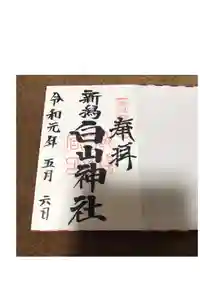 奉拝
新潟
白山神社
令和元年 五月 六日